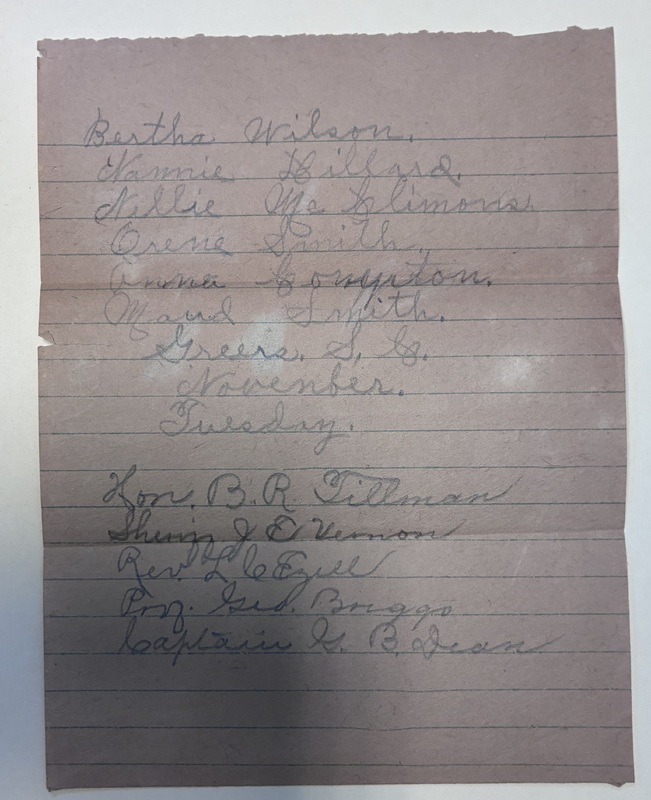 Bertha Wilson.
Nannie Dillard.
Nellie Mc Climons.
Orene Smith.
Anna Compton.
Maud Smith.
Greers. S. C.
November.
Tuesday.
Hon. B. R. Tillman
J E Vernon
Rev. L C Ezell
Prof. Geo. Briggs
Captain G. B. Dean